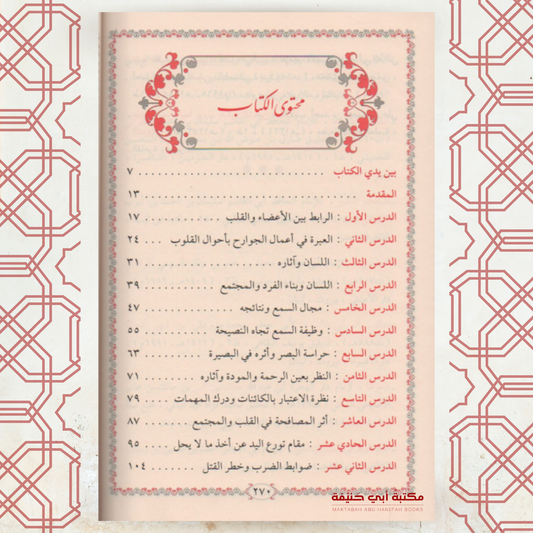 محتوى الكتاب
بين يدي الكتاب ........................ ٧
المقدمة ........................ ١٣
الدرس الأول : الرابط بين الأعضاء والقلب ............ ١٧
الدرس الثاني : العبرة في أعمال الجوارح بأحوال القلوب .... ٢٤
الدرس الثالث : اللسان وآثاره ................ ٣١
الدرس الرابع : اللسان وبناء الفرد والمجتمع ............ ٣٩
الدرس الخامس : مجال السمع ونتائجه ............ ٤٧
الدرس السادس : وظيفة السمع تجاه النصيحة ............ ٥٥
الدرس السابع : حراسة البصر وأثره في البصيرة .......... ٦٣
الدرس الثامن : النظر بعين الرحمة والمودة وآثاره .......... ٧١
الدرس التاسع : نظرة الاعتبار بالكائنات ودرك المهمات ...... ٧٩
الدرس العاشر : أثر المصافحة في القلب والمجتمع ........ ٨٧
الدرس الحادي عشر : مقام تورع اليد عن أخذ ما لا يحل .... ٩٥
الدرس الثاني عشر : ضوابط الضرب وخطر القتل ...... ١٠٤
٢٧٠
مكتبة أبي حنيفة
MAKTABAH ABU HANIFAH BOOKS